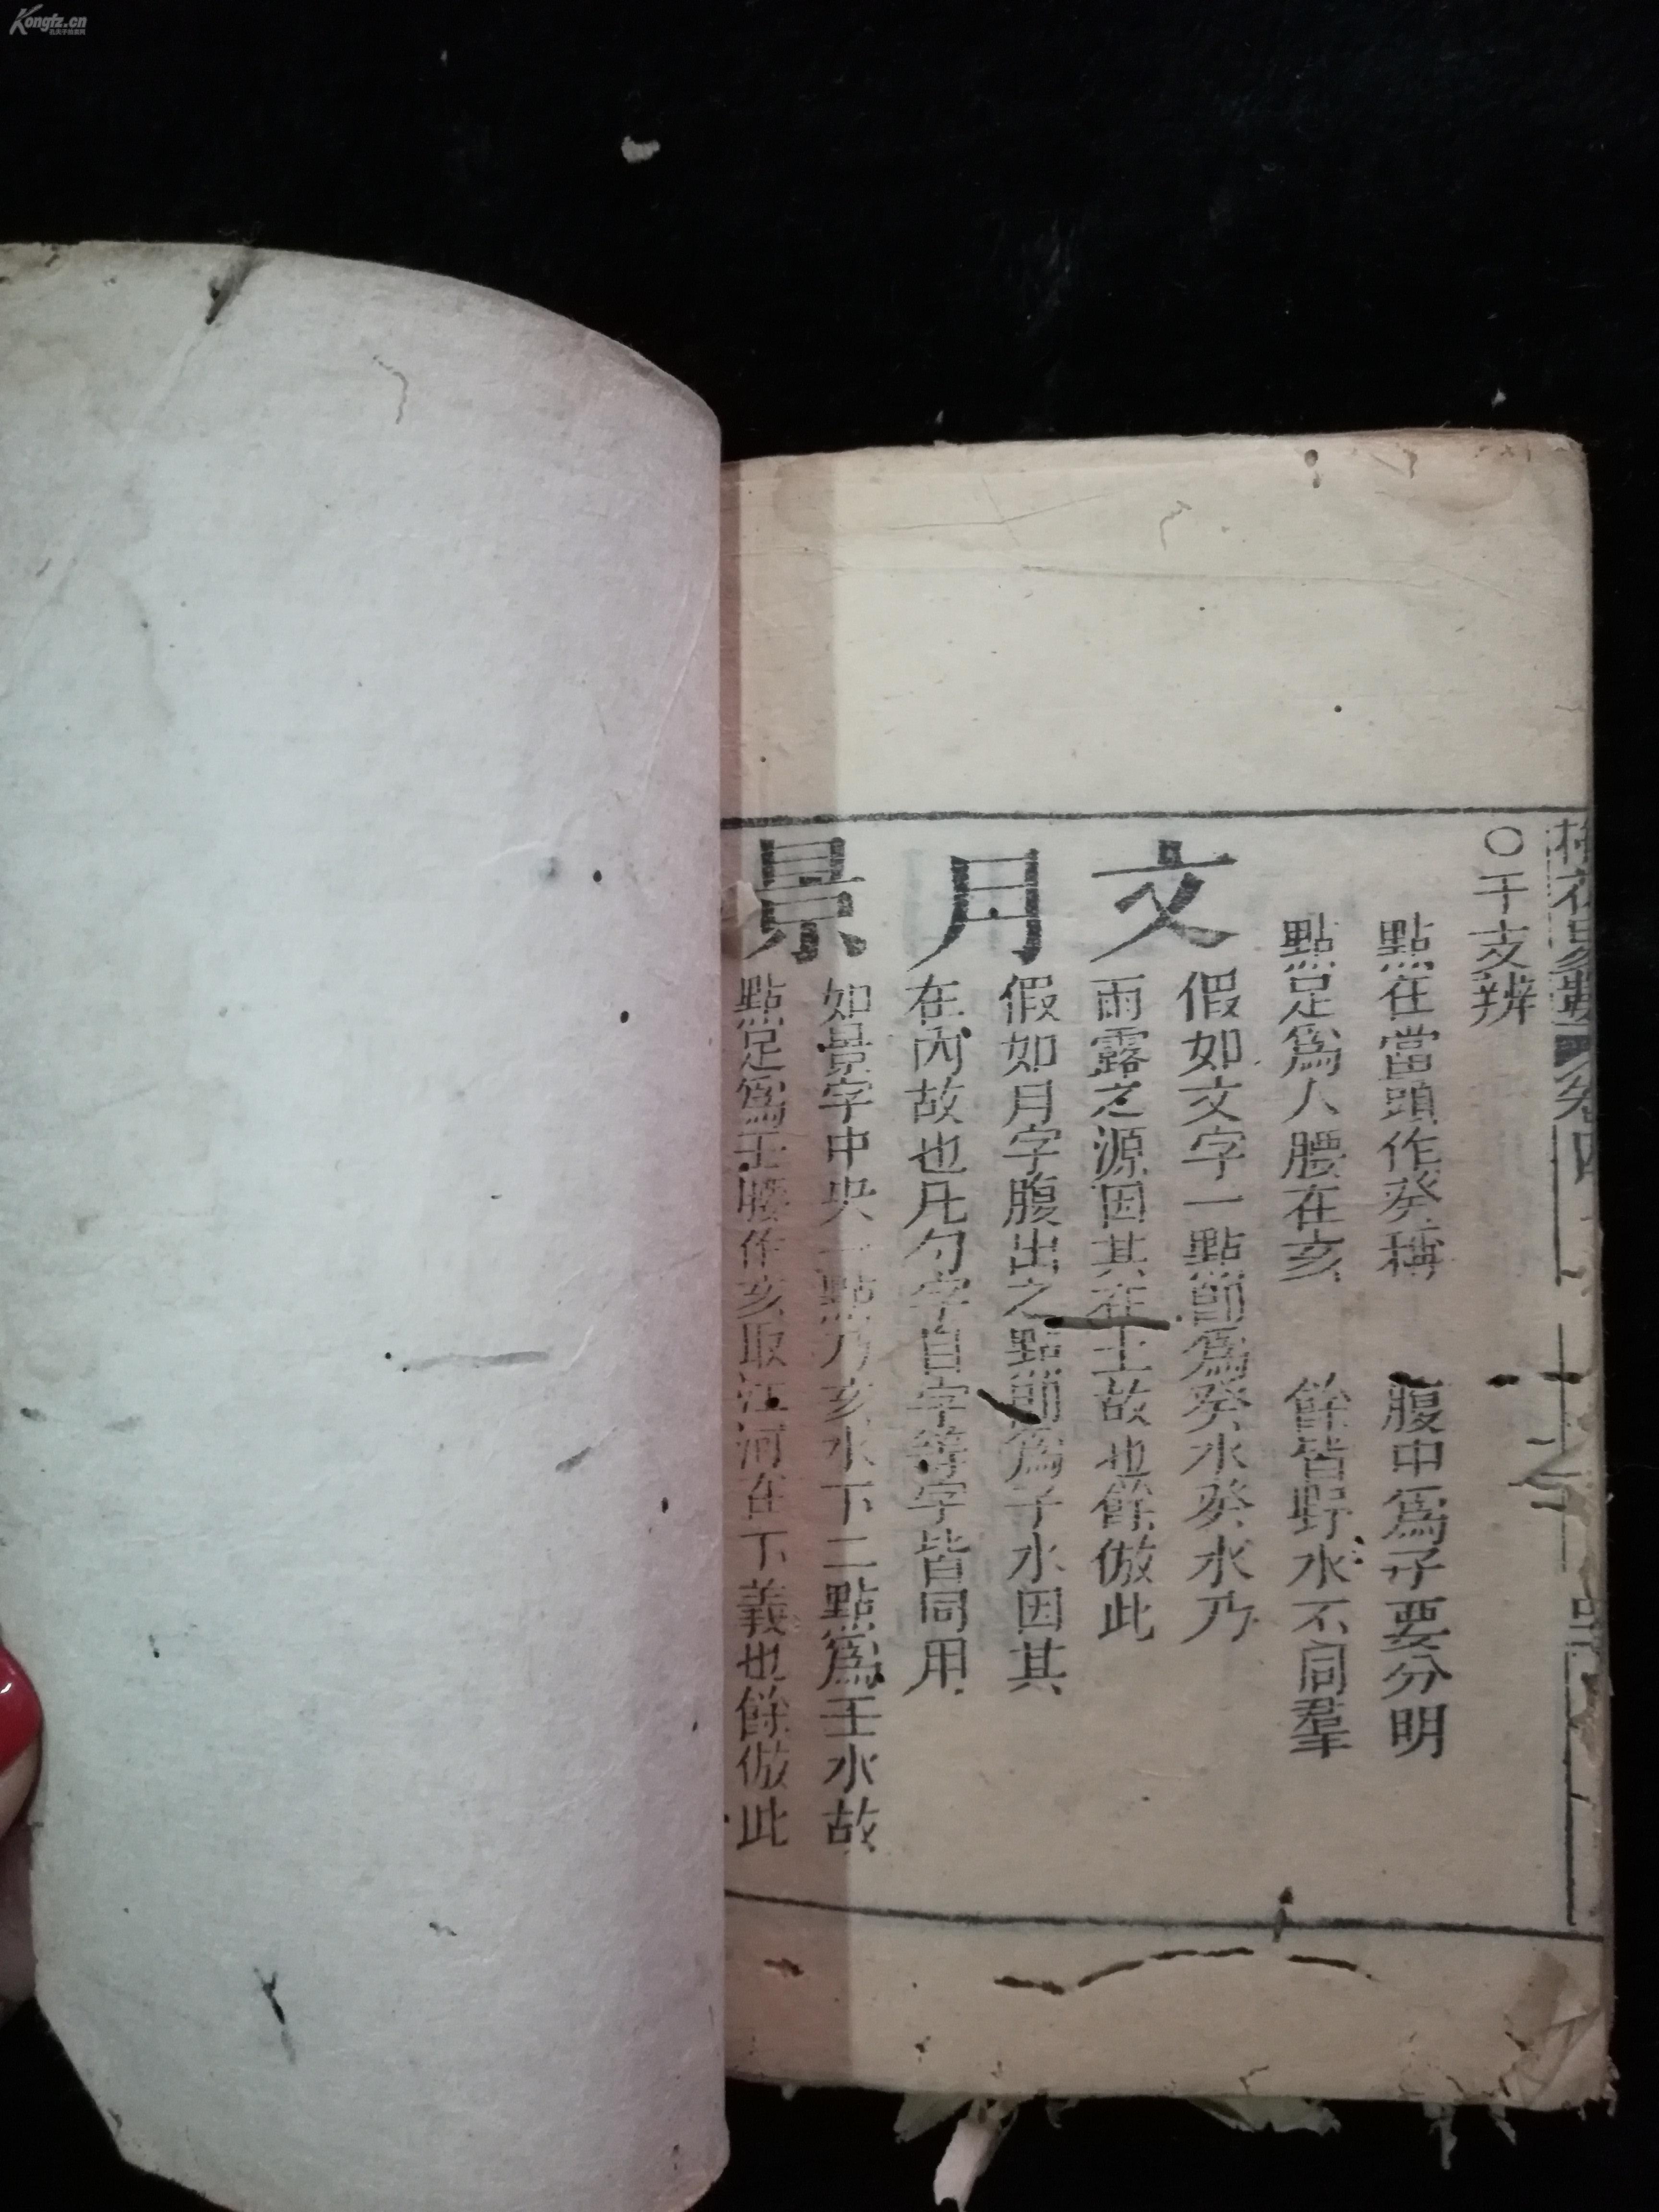 Kongfz.cn
孔夫子旧书网
梅花易數 卷四
〇干支辨
點在當頭作癸稱 腹中爲子要分明
點足爲人腰在亥 餘皆野水不同羣
文
假如文字一點卽爲癸水癸水乃
雨露之源因其在上故也餘倣此
月
假如月字腹出之點卽爲子水因其
在內故也凡勺字自字等字皆同用
景
如景字中央一點乃亥水下二點爲壬水故
點足爲壬腰作亥取江河在下義也餘倣此